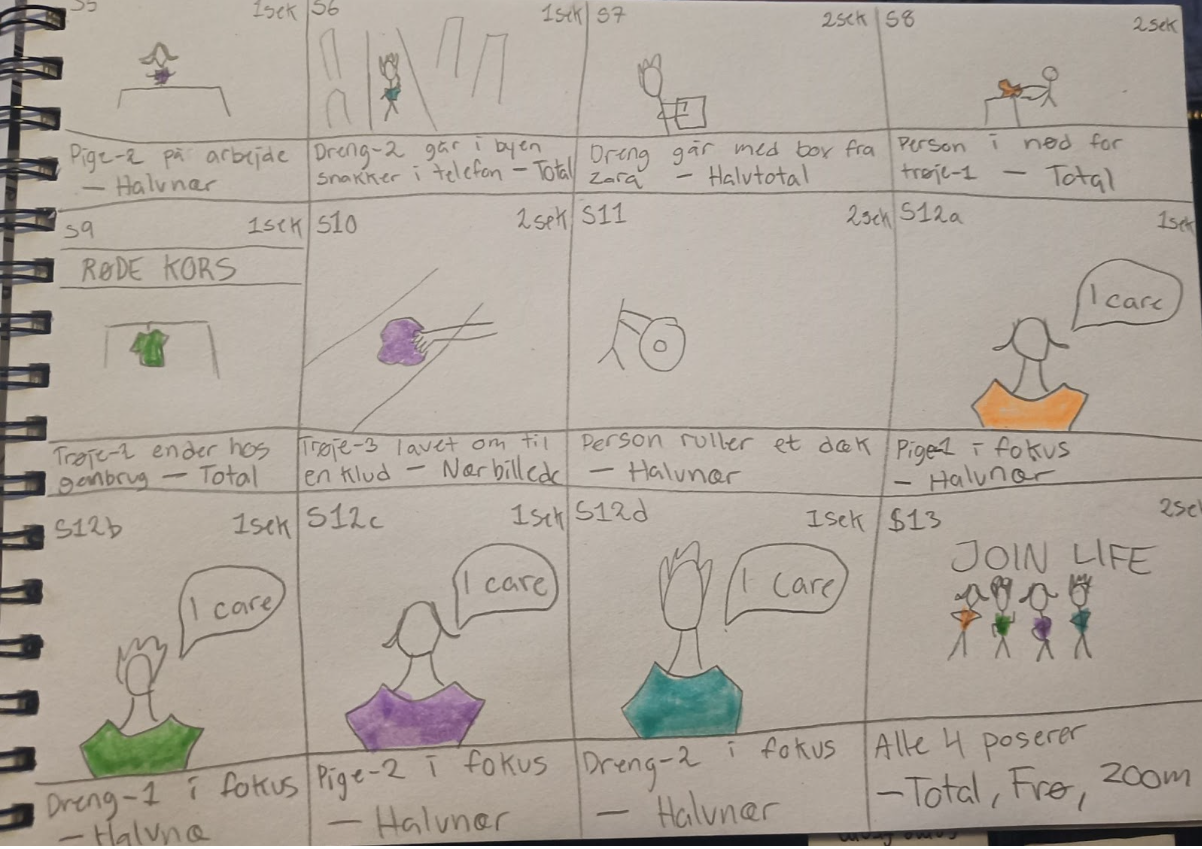 S5 1sek
Pige-2 på arbejde
- Halvnær
S6 1sek
Dreng-2 går i byen
snakker i telefon - Total
S7 2sek
Dreng går med box fra
zara - Halvtotal
S8 2sek
Person i nød får
trøje-1 - Total
S9 1sek
RØDE KORS
Trøje-2 ender hos
genbrug - Total
S10 2sek
Trøje-3 lavet om til
en klud - Nærbillede
S11 2sek
Person ruller et dæk
- Halvnær
S12a 1sek
I care
Pige-1 i fokus
- Halvnær
S12b 1sek
I care
Dreng-1 i fokus
- Halvnæ
S12c 1sek
I care
Pige-2 i fokus
- Halvnær
S12d 1sek
I care
Dreng-2 i fokus
- Halvnær
S13 2se
JOIN LIFE
Alle 4 poserer
- Total, Frø, zoom